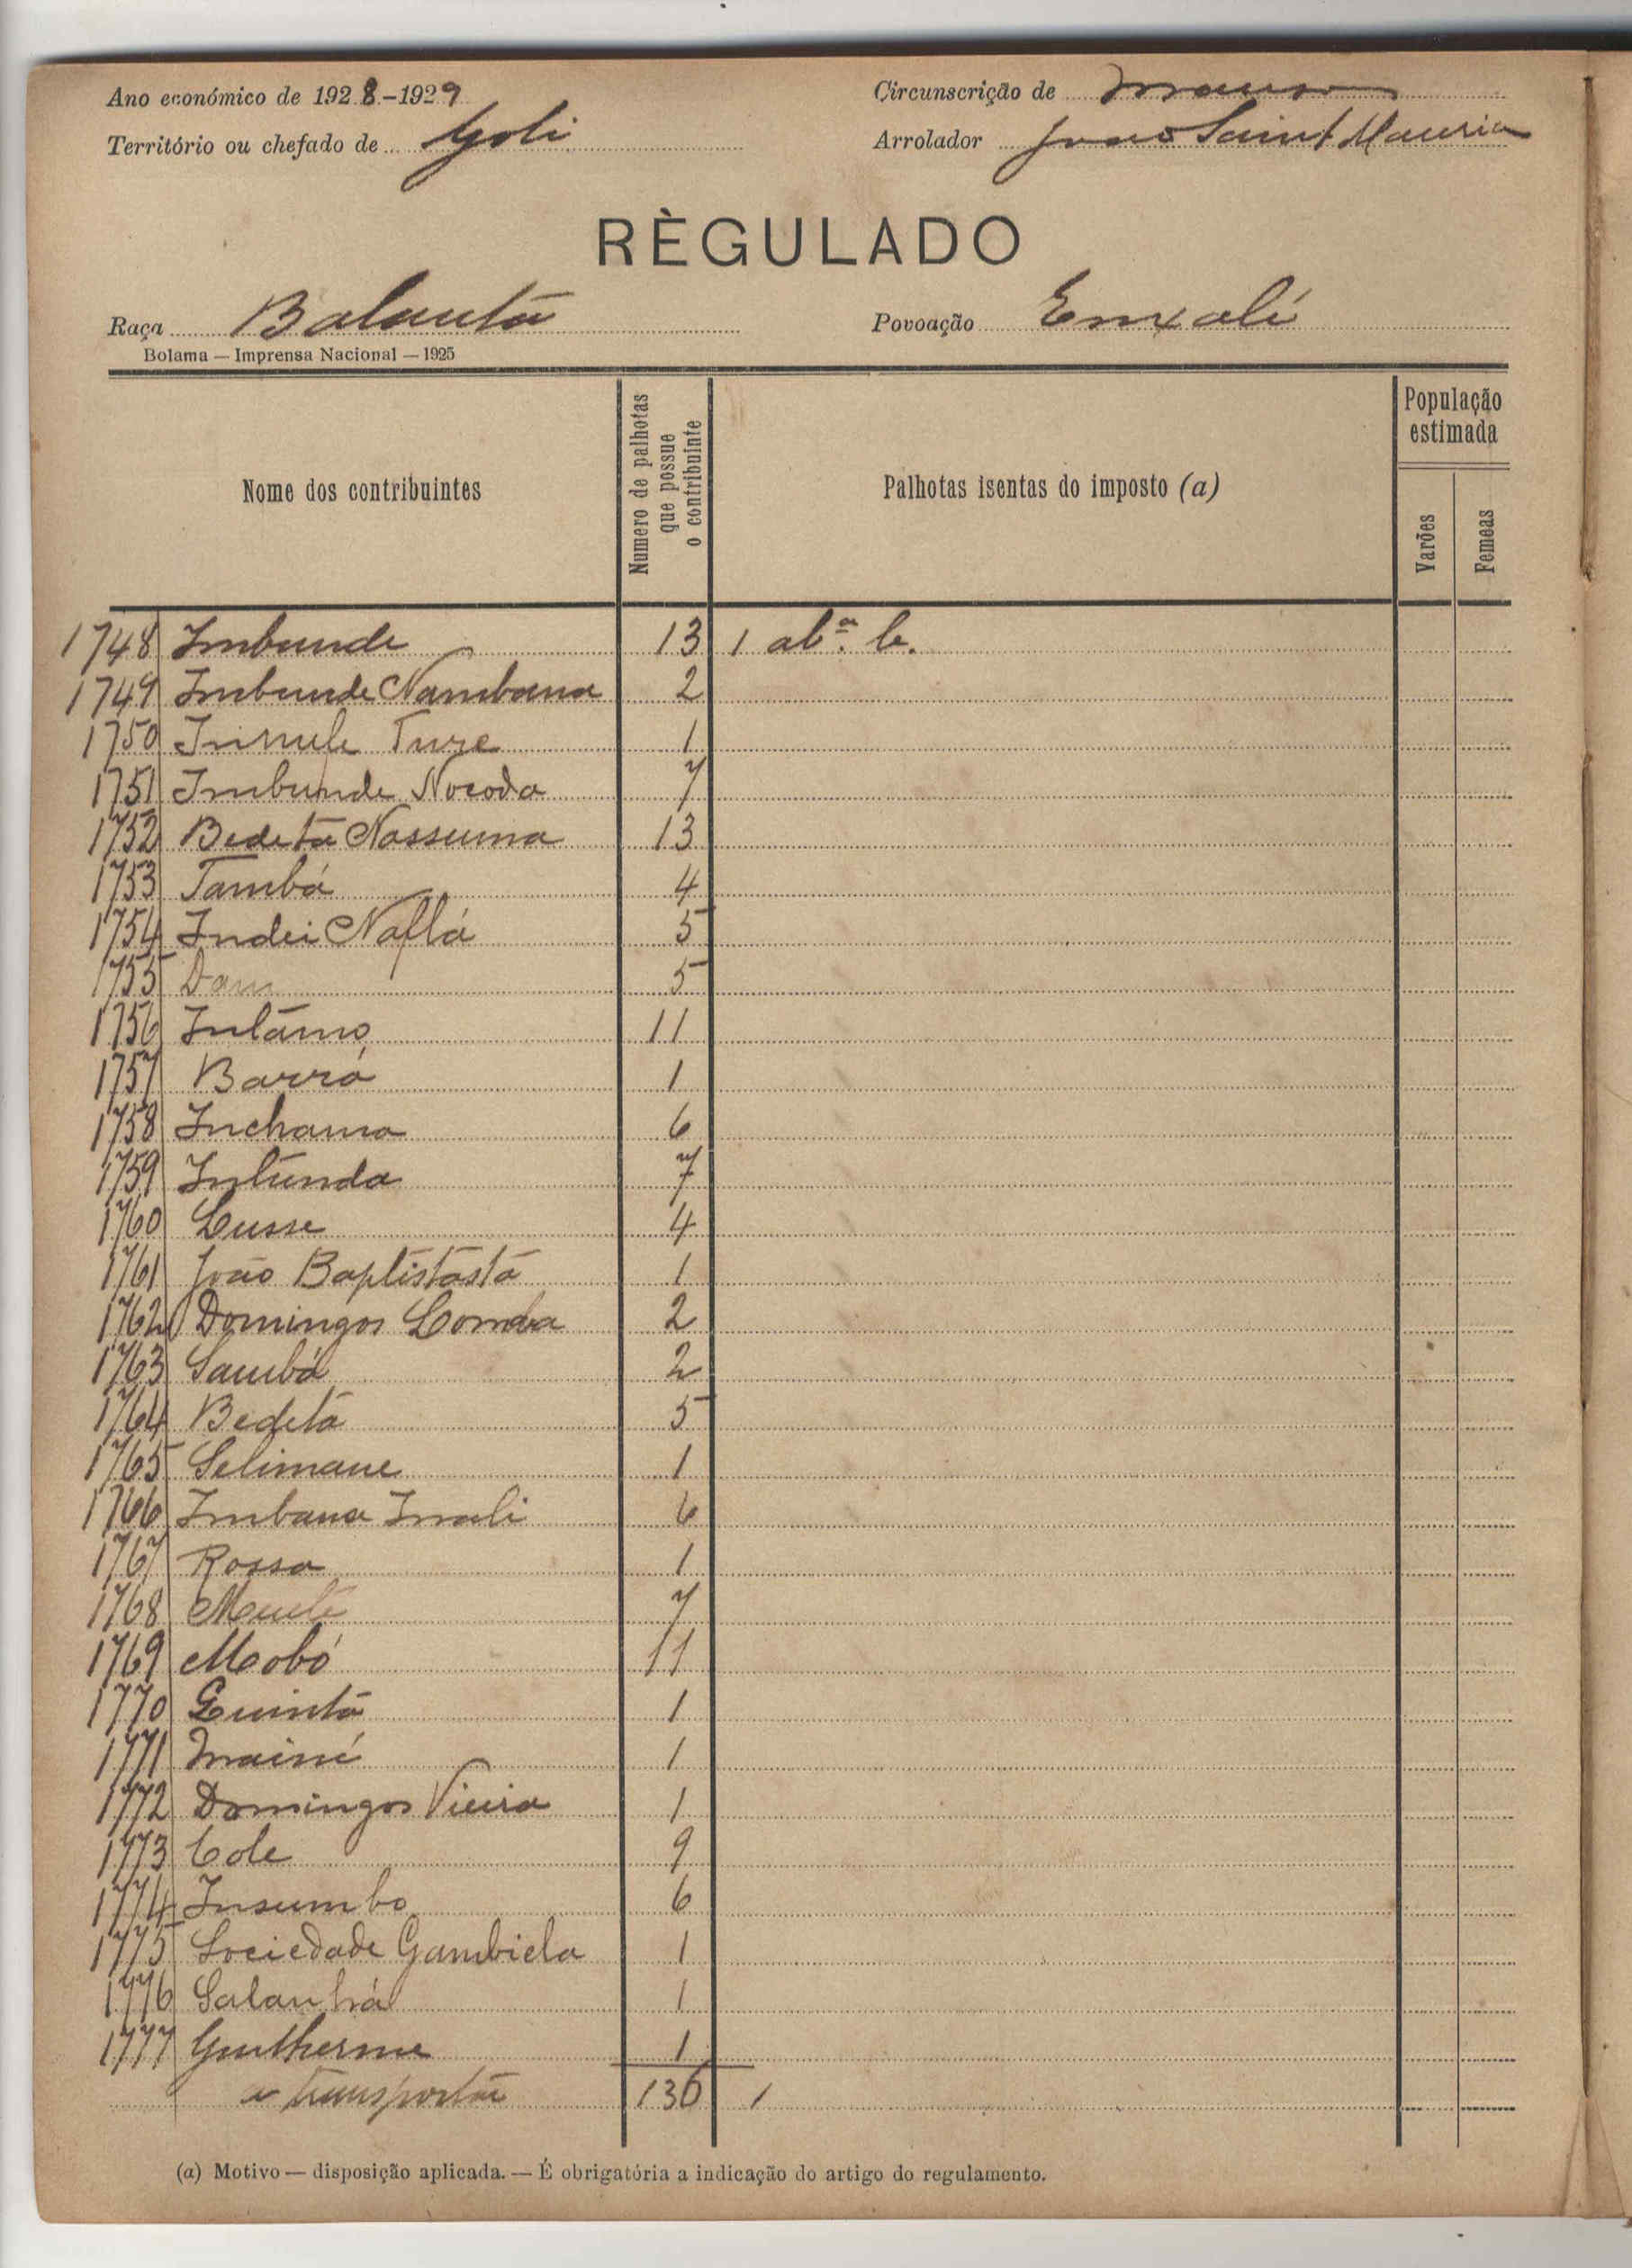 Ano económico de 1928-1929 Circunscrição de Mansoa
Território ou chefado de Goli Arrolador João Saint Mauricio
RÈGULADO
Raça Balanta Povoação Enxalé
Bolama — Imprensa Nacional — 1925
Nome dos contribuintes Numero de palhotas que possue o contribuinte Palhotas isentas do imposto (a) População estimada
Varões Femeas
1748 Imbunde 13 1 al.ª b.
1749 Imbunde Nambana 2
1750 Ture 1
1751 Imbunde Nocoda 7
1752 Bedeta Nassuma 13
1753 Tambá 4
1754 Indei Naflá 5
1755 Dam 5
1756 11
1757 Barró 1
1758 Inchama 6
1759 Intunda 7
1760 Cusse 4
1761 João Baptistastá 1
1762 Domingos Comba 2
1763 Sambá 2
1764 Bedetá 5
1765 Selimane 1
1766 Imbana Imali 6
1767 Rossa 1
1768 7
1769 Mobó 11
1770 Quintá 1
1771 Mainé 1
1772 Domingos Vieira 1
1773 Cole 9
1774 Insumbo 6
1775 Sociedade Gambiela 1
1776 1
1777 Guilherme 1
a transportar 136 1
(a) Motivo — disposição aplicada. — É obrigatória a indicação do artigo do regulamento.